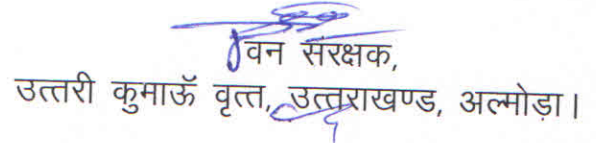 वन संरक्षक,
उत्तरी कुमाऊॅ वृत्त, उत्तराखण्ड, अल्मोड़ा।